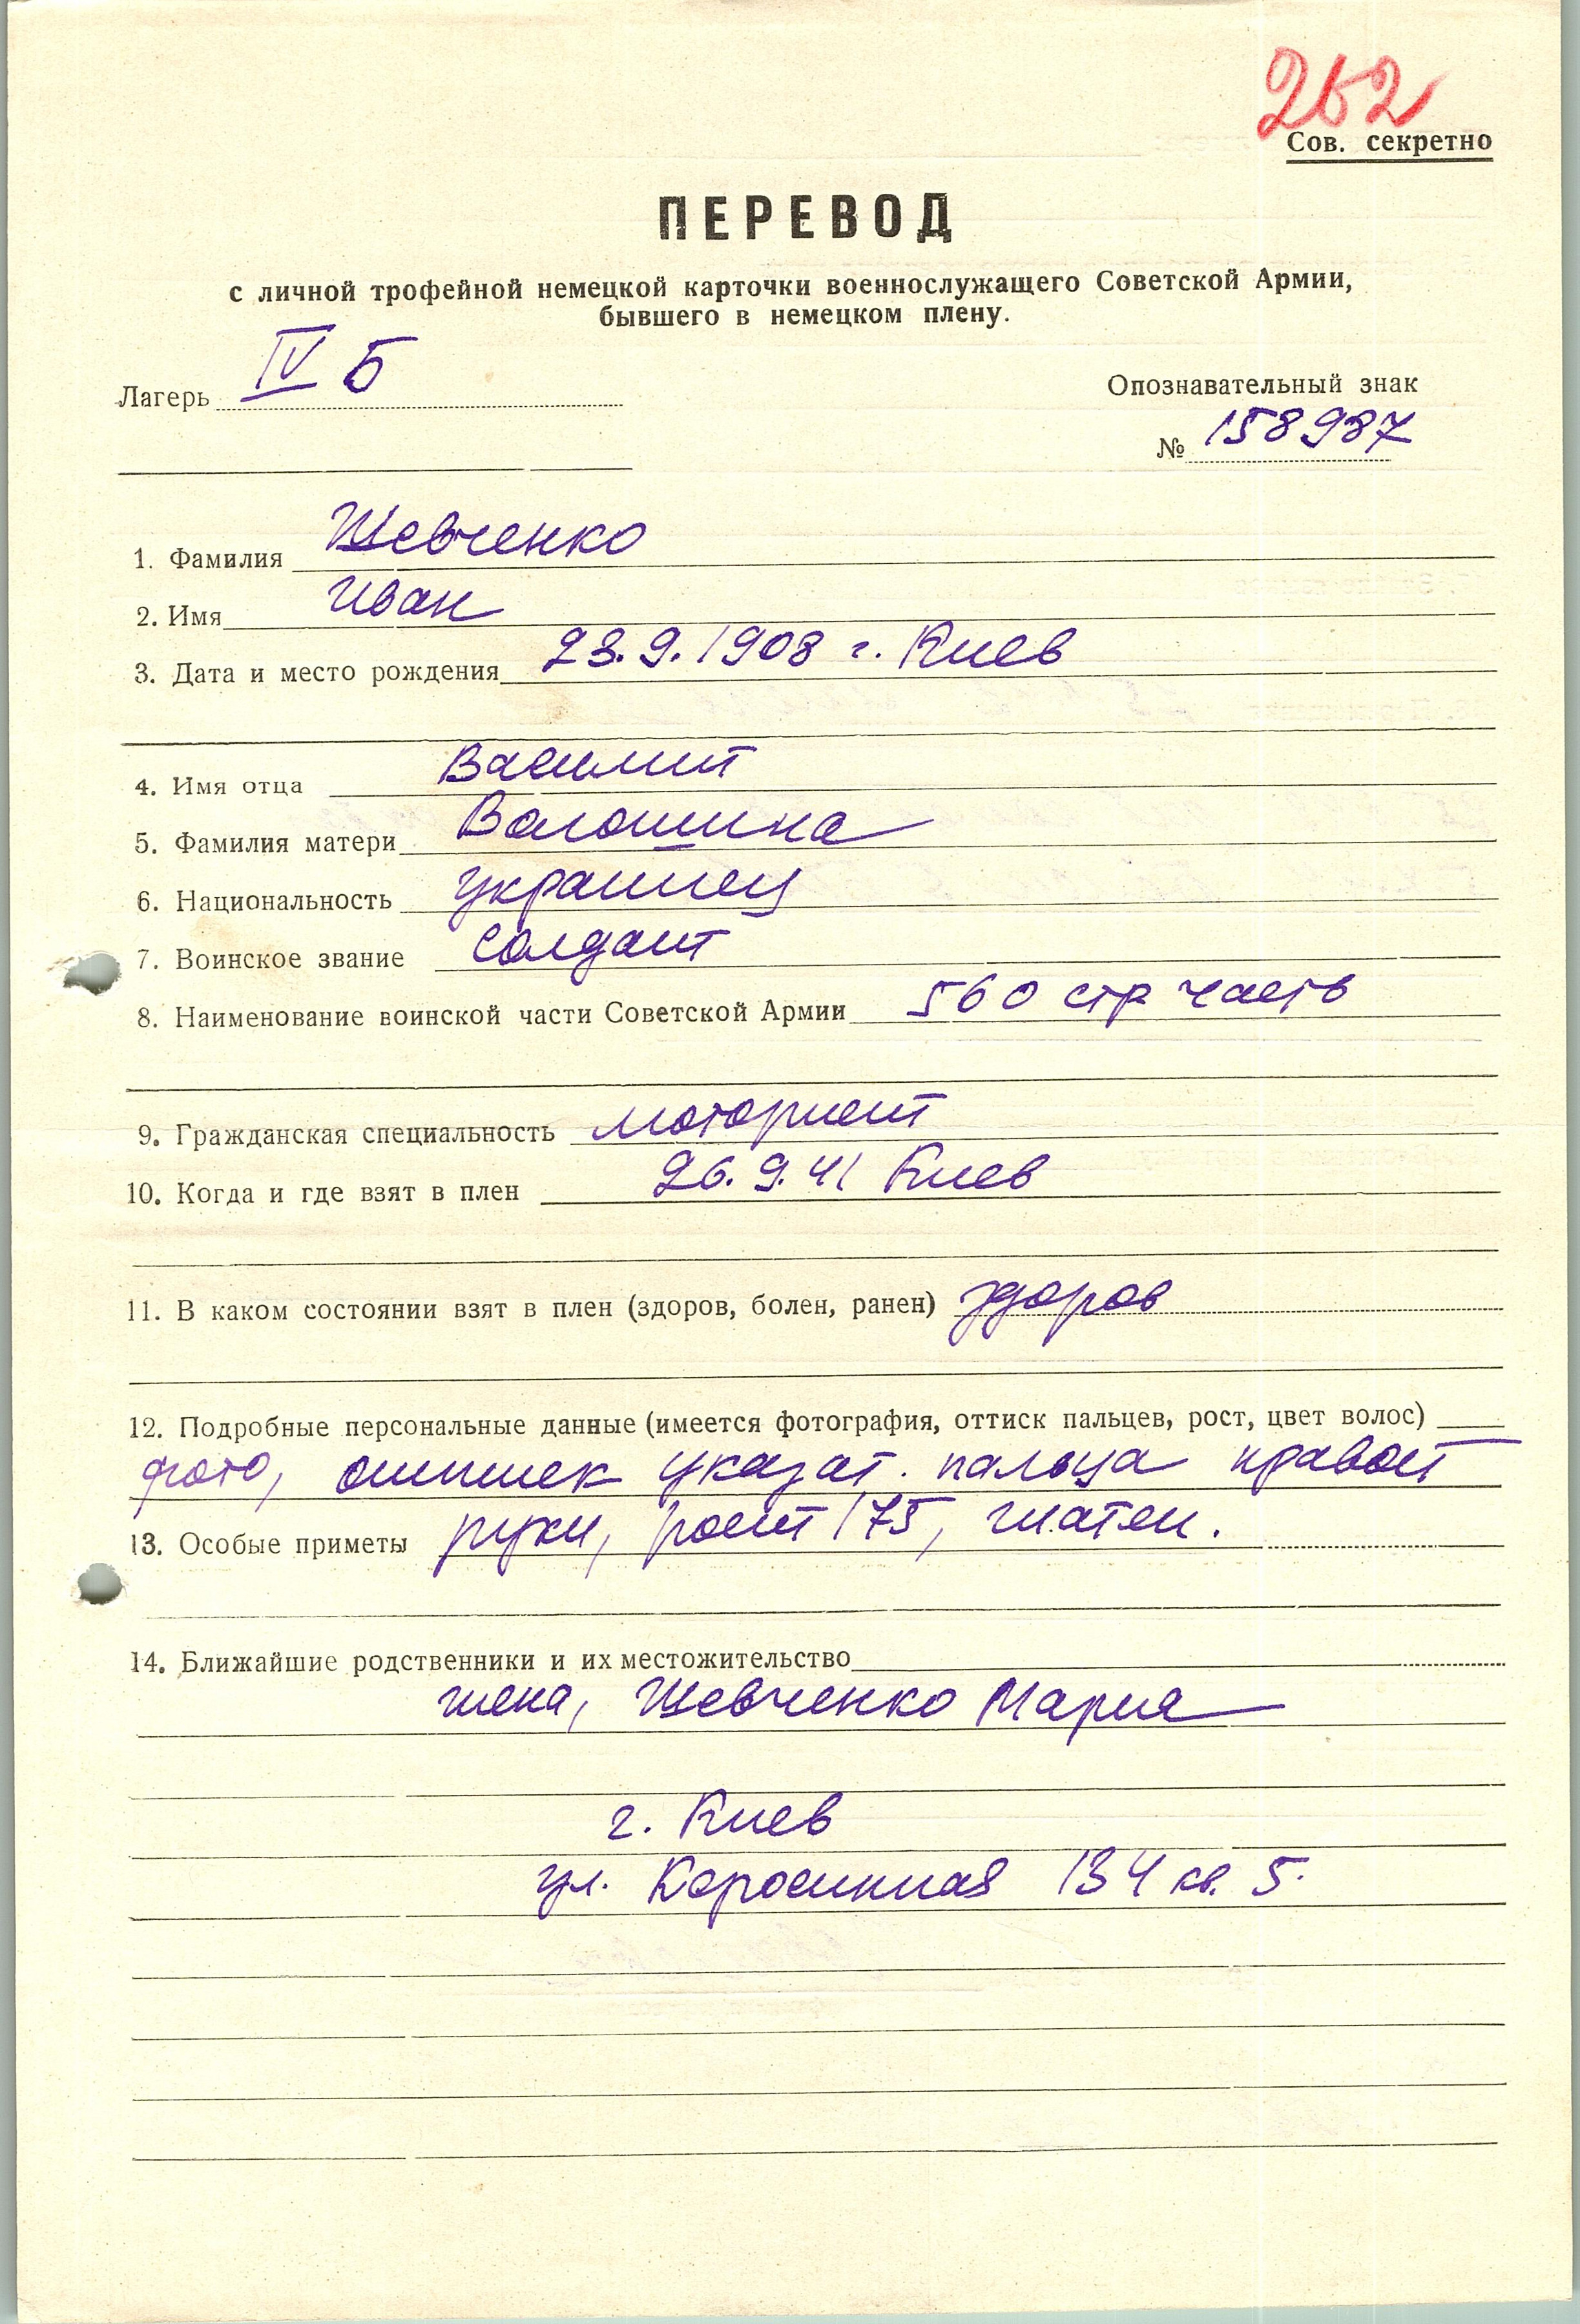 262
Сов. секретно
ПЕРЕВОД
с личной трофейной немецкой карточки военнослужащего Советской Армии,
бывшего в немецком плену.
Лагерь IV Б
Опознавательный знак
№ 158987
1. Фамилия Шевченко
2. Имя Иван
3. Дата и место рождения 23.9.1908 г. Киев
4. Имя отца Василий
5. Фамилия матери Волошина
6. Национальность украинец
7. Воинское звание солдат
8. Наименование воинской части Советской Армии 560 стр часть
9. Гражданская специальность моторист
10. Когда и где взят в плен 26.9.41 Киев
11. В каком состоянии взят в плен (здоров, болен, ранен) здоров
12. Подробные персональные данные (имеется фотография, оттиск пальцев, рост, цвет волос)
фото, оттиск указат. пальца правой
13. Особые приметы руки, рост 175, шатен.
14. Ближайшие родственники и их местожительство
жена, Шевченко Мария
г. Киев
ул. Керосинная 134 кв. 5.